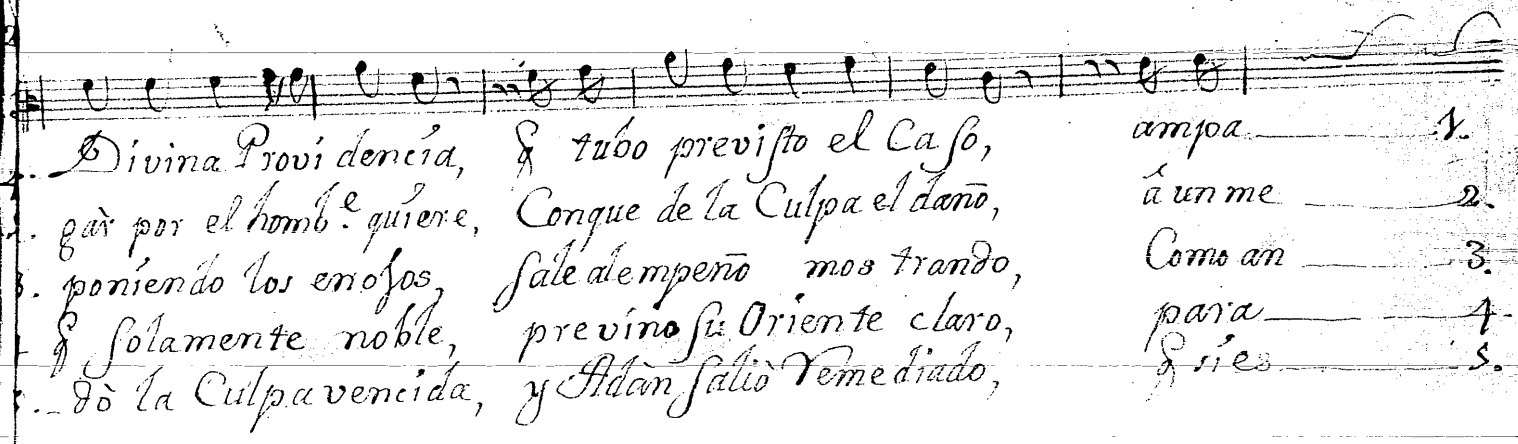 Divina Providencia, q̃ tubo previſto el Caſo, ampa 1.
2. gàr por el homb.e quiere, Conque de la Culpa el daño, áun me 2.
3. poniendo los enojos, ſale al empeño mostrando, Como an 3.
q̃ ſolamente noble, previno ſu Oriente claro, para 4
dò la Culpa vencida, y Adàn ſaliò remediado, q̃ si es 5.